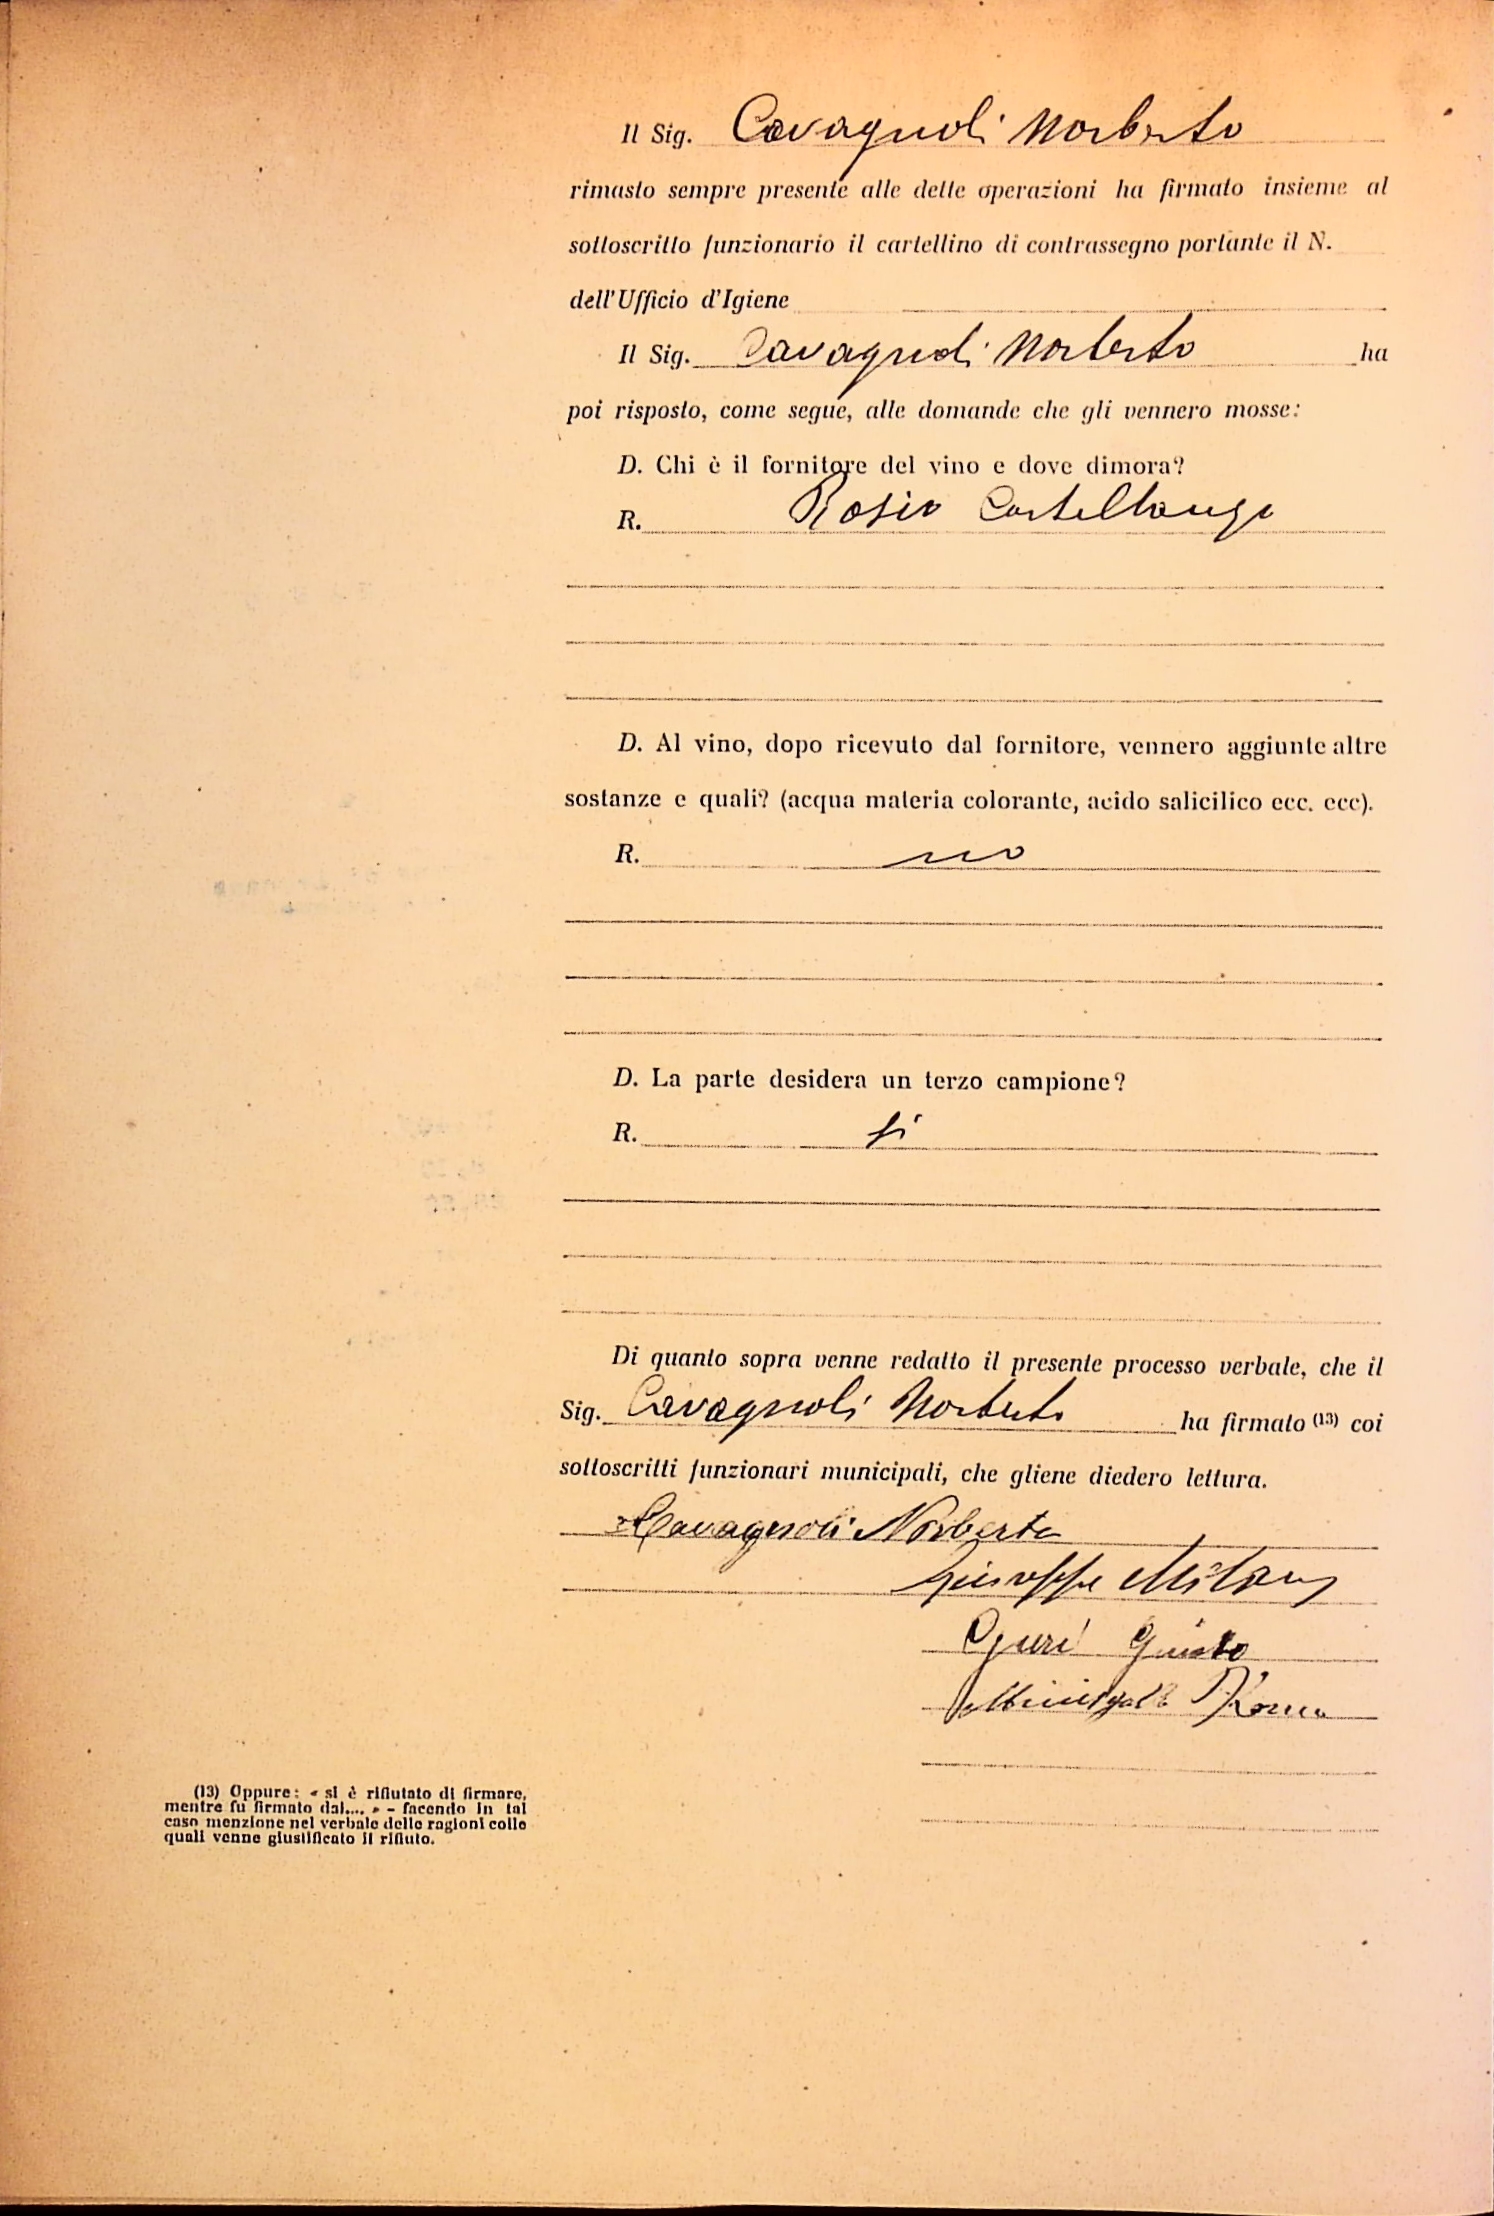 Il Sig. Cavagnoli Norberto
rimasto sempre presente alle dette operazioni ha firmato insieme al
sottoscritto funzionario il cartellino di contrassegno portante il N.
dell'Ufficio d'Igiene
Il Sig. Cavagnoli Norberto ha
poi risposto, come segue, alle domande che gli vennero mosse:
D. Chi è il fornitore del vino e dove dimora?
R. Rosio
D. Al vino, dopo ricevuto dal fornitore, vennero aggiunte altre
sostanze e quali? (acqua materia colorante, acido salicilico ecc. ecc).
R. no
D. La parte desidera un terzo campione?
R. si
Di quanto sopra venne redatto il presente processo verbale, che il
Sig. Cavagnoli Norberto ha firmato (13) coi
sottoscritti funzionari municipali, che gliene diedero lettura.
Cavagnoli Norberto
Giuseppe Milani
(13) Oppure: « si è rifiutato di firmare,
mentre fu firmato dal.... » - facendo in tal
caso menzione nel verbale delle ragioni colle
quali venne giustificato il rifiuto.